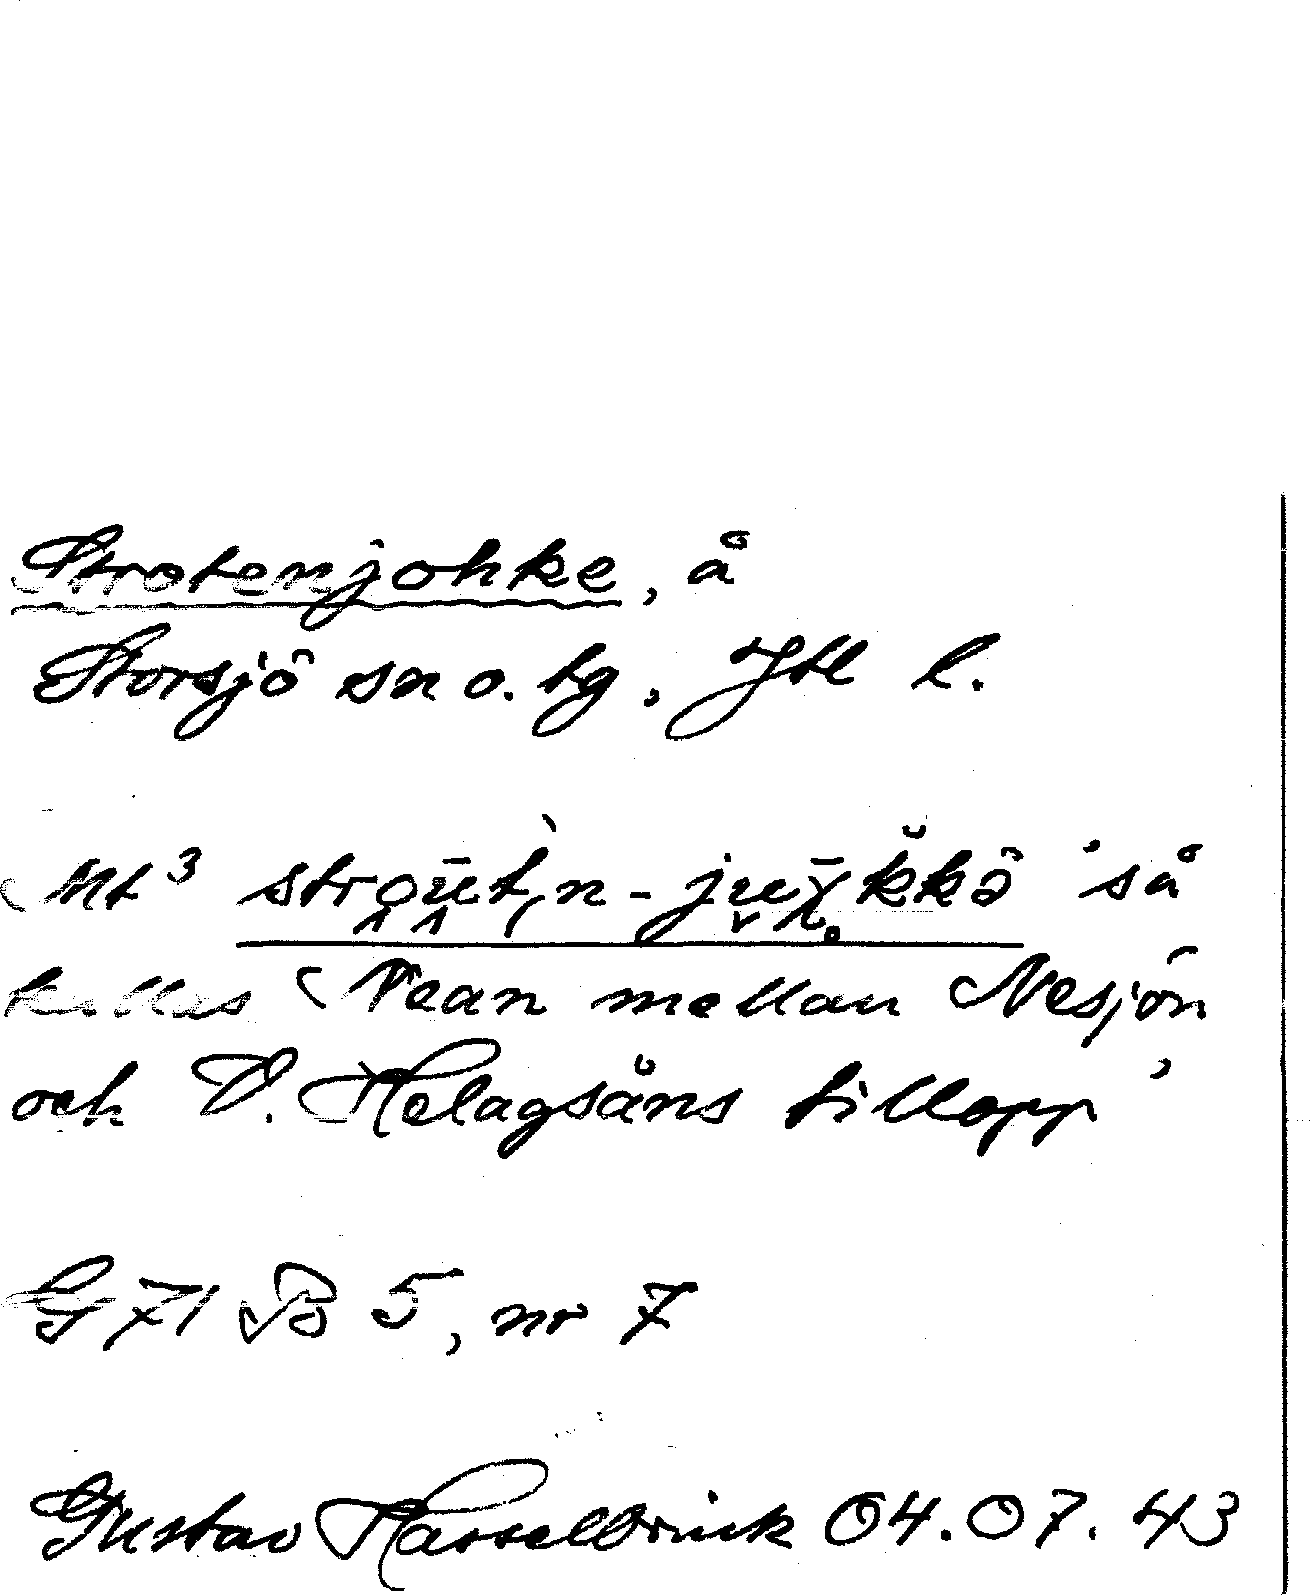 Strotenjohke, å
Storsjö sn o. tg, Jtl l.
Mt³ 'så
kallas Nean mellan Nesjön
och V. Helagsåns tillopp'
G 71 B 5, nr 7
Gustav Hasselbrink 04.07.43